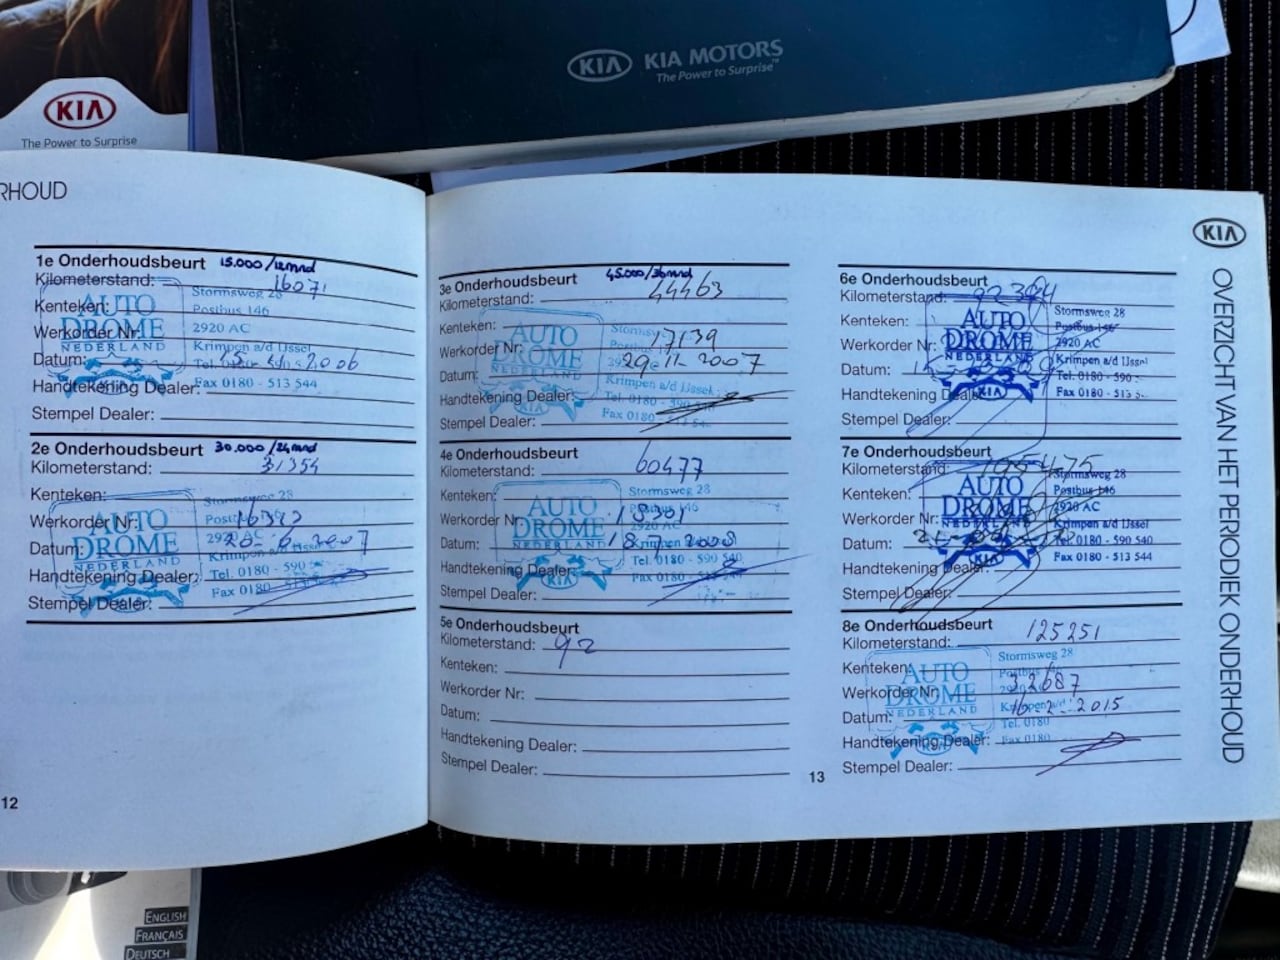 KIA
The Power to Surprise
KIA KIA MOTORS
The Power to Surprise™
RHOUD
1e Onderhoudsbeurt 15.000/12mnd
Kilometerstand: 16071
Kenteken:
Werkorder Nr:
Datum: 2006
Handtekening Dealer:
Stempel Dealer:
AUTO
DROME
NEDERLAND
KIA
Stormsweg 28
Postbus 146
2920 AC
Krimpen a/d IJssel
Tel. 0180 - 590 540
Fax 0180 - 513 544
2e Onderhoudsbeurt 30.000/24mnd
Kilometerstand: 31354
Kenteken:
Werkorder Nr:
Datum: 20-6-2007
Handtekening Dealer:
Stempel Dealer:
AUTO
DROME
NEDERLAND
Stormsweg 28
Krimpen a/d IJssel
Tel. 0180 - 590
Fax 0180 -
12
3e Onderhoudsbeurt 45.000/36mnd
Kilometerstand: 44463
Kenteken:
Werkorder Nr: 17139
Datum: 29-11-2007
Handtekening Dealer:
Stempel Dealer:
AUTO
DROME
NEDERLAND
KIA
Krimpen a/d IJssel
Tel. 0180 - 590
Fax 0180
4e Onderhoudsbeurt
Kilometerstand: 60477
Kenteken:
Werkorder Nr: 18301
Datum: 18 7 2008
Handtekening Dealer:
Stempel Dealer:
AUTO
DROME
NEDERLAND
KIA
Stormsweg 28
2920 AC
Krimpen a/d IJssel
Tel. 0180 - 590 540
Fax 0180
5e Onderhoudsbeurt
Kilometerstand:
Kenteken:
Werkorder Nr:
Datum:
Handtekening Dealer:
Stempel Dealer:
6e Onderhoudsbeurt
Kilometerstand:
Kenteken:
Werkorder Nr:
Datum:
Handtekening Dealer:
Stempel Dealer:
AUTO
DROME
NEDERLAND
KIA
Stormsweg 28
Postbus 146
2920 AC
Krimpen a/d IJssel
Tel. 0180 - 590
Fax 0180 - 513
7e Onderhoudsbeurt
Kilometerstand: 105475
Kenteken:
Werkorder Nr:
Datum:
Handtekening Dealer:
Stempel Dealer:
AUTO
DROME
NEDERLAND
KIA
Stormsweg 28
Postbus 146
2920 AC
Krimpen a/d IJssel
Tel. 0180 - 590 540
Fax 0180 - 513 544
8e Onderhoudsbeurt
Kilometerstand: 125251
Kenteken:
Werkorder Nr: 32687
Datum: 16-2-2015
Handtekening Dealer:
Stempel Dealer:
AUTO
DROME
NEDERLAND
KIA
Stormsweg 28
Tel. 0180
Fax 0180
13
KIA
OVERZICHT VAN HET PERIODIEK ONDERHOUD
ENGLISH
FRANÇAIS
DEUTSCH